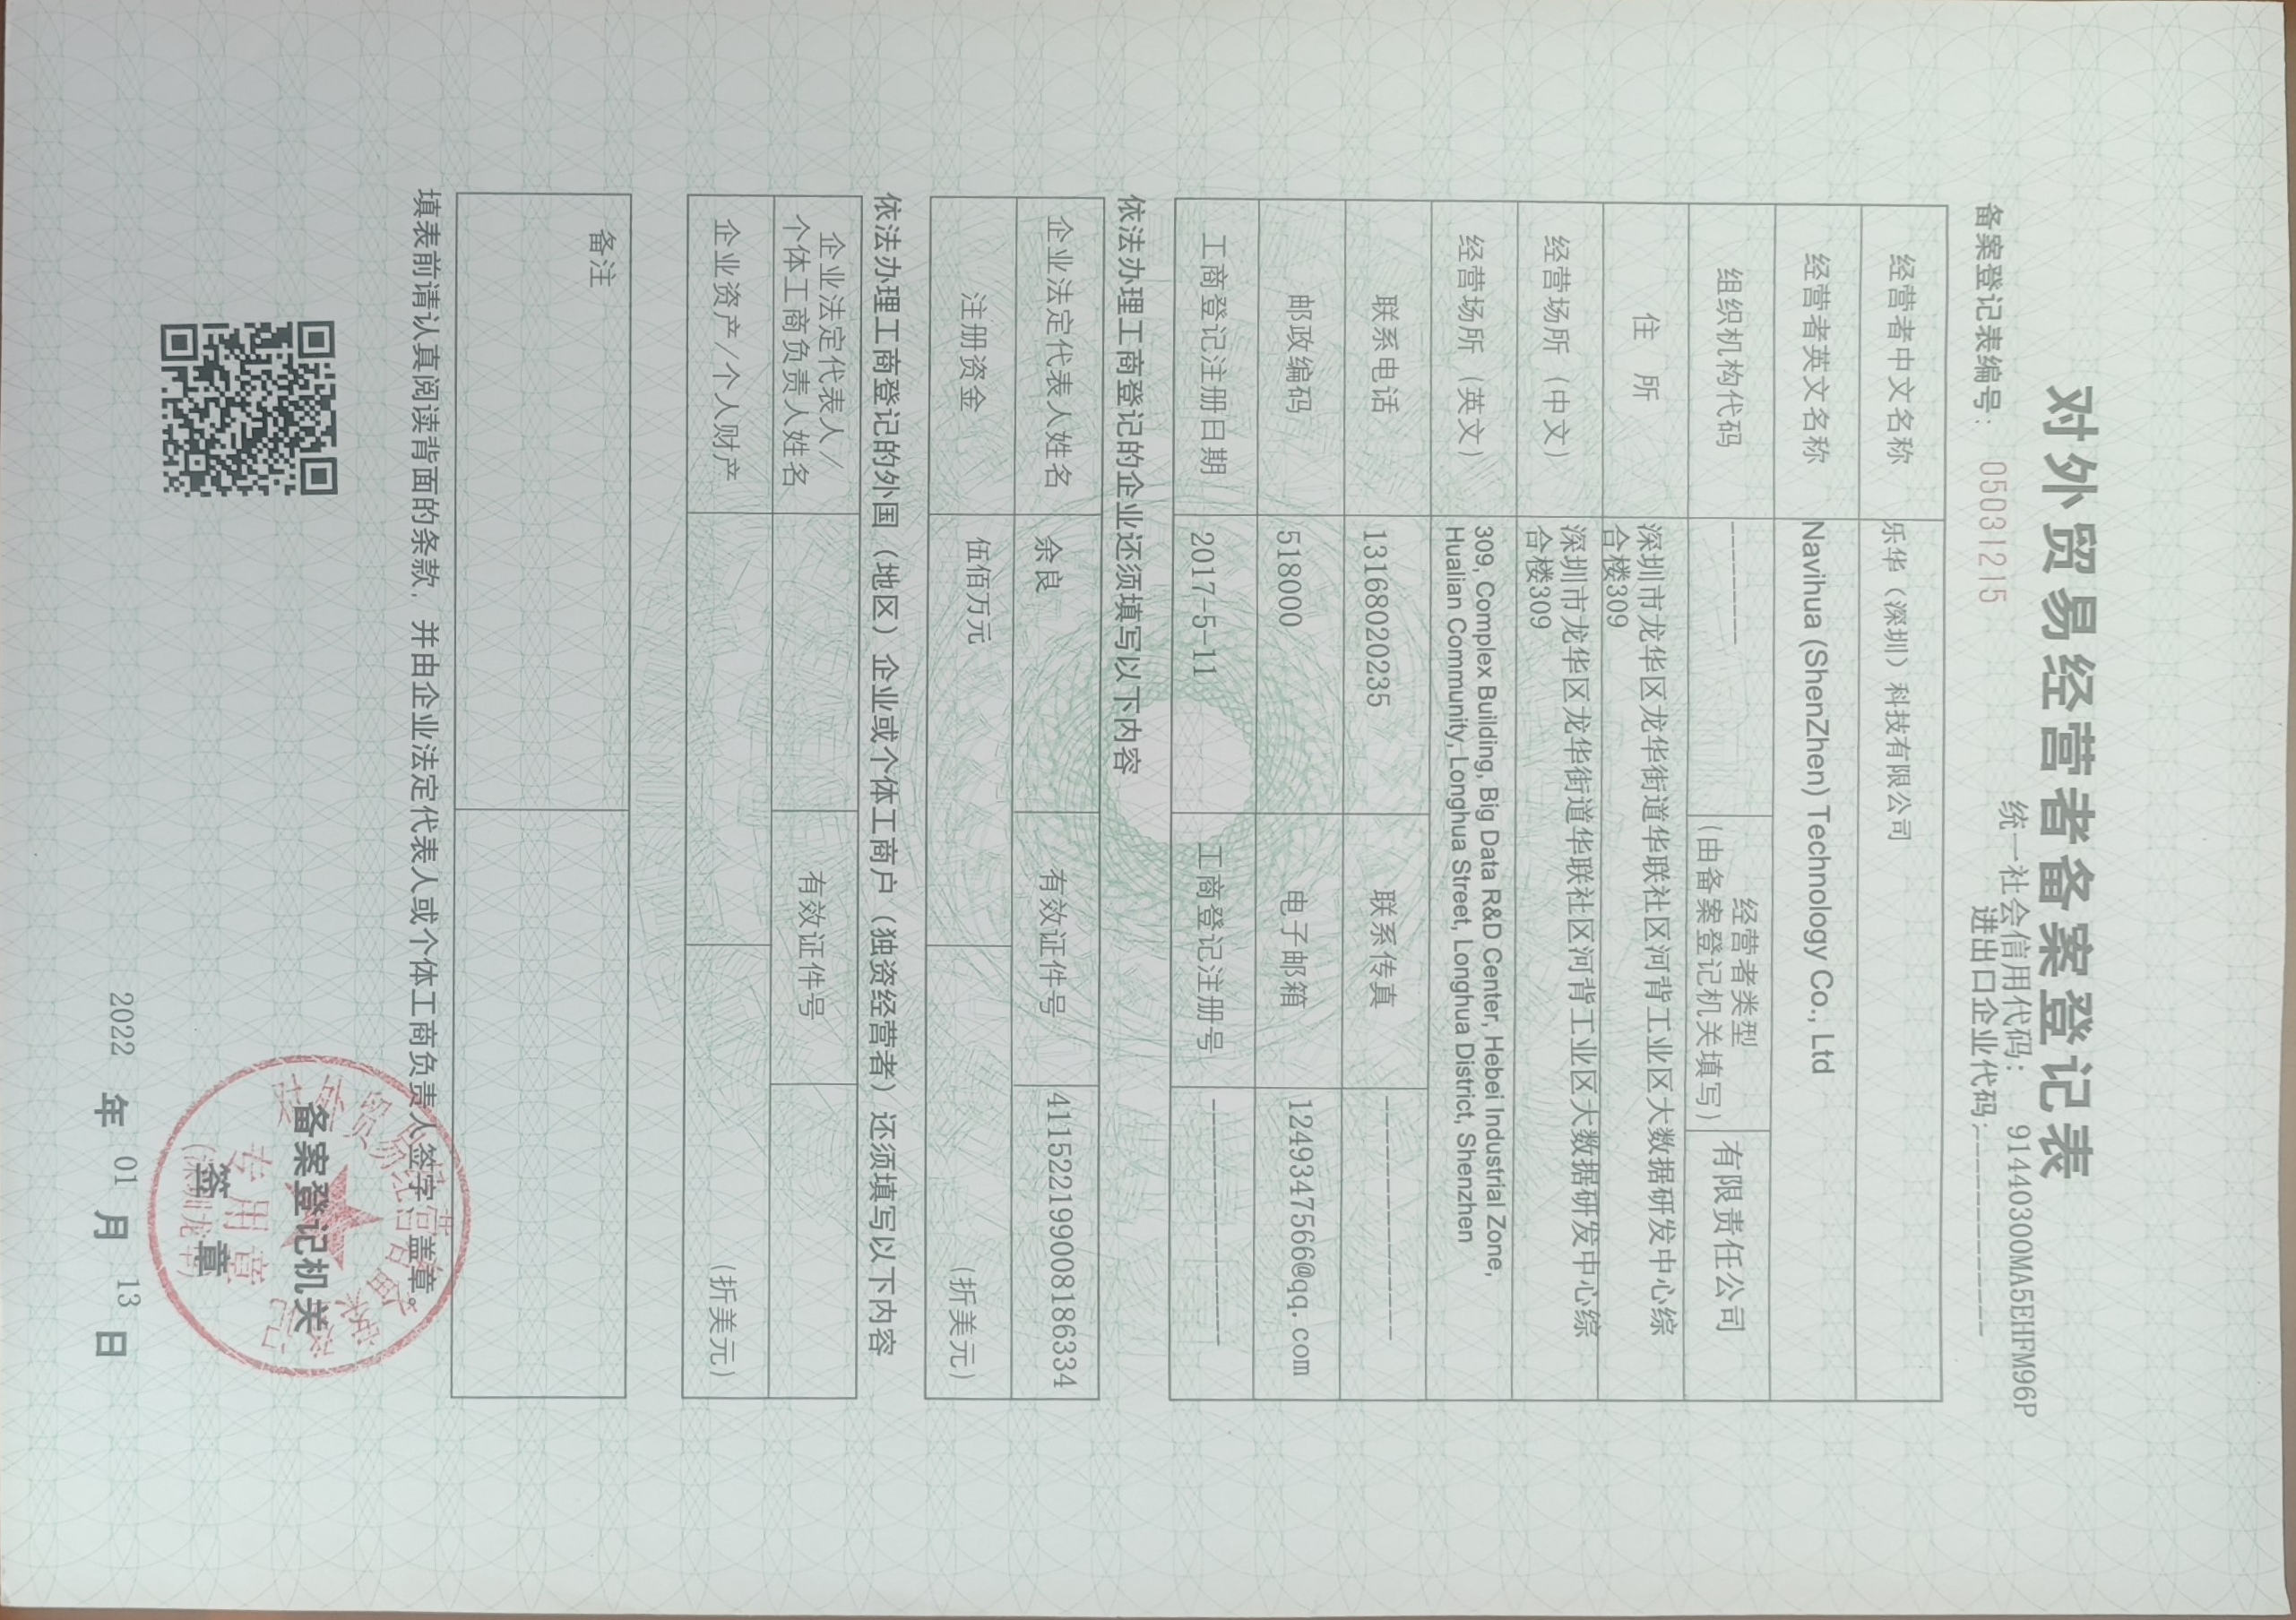 对外贸易经营者备案登记表
统一社会信用代码： 91440300MA5EHFM96P
备案登记表编号： 05031215
进出口企业代码：-------------
经营者中文名称 乐华（深圳）科技有限公司
经营者英文名称 Navihua (ShenZhen) Technology Co., Ltd
组织机构代码 -------- 经营者类型
（由备案登记机关填写） 有限责任公司
住 所 深圳市龙华区龙华街道华联社区河背工业区大数据研发中心综
合楼309
经营场所（中文） 深圳市龙华区龙华街道华联社区河背工业区大数据研发中心综
合楼309
经营场所（英文） 309, Complex Building, Big Data R&D Center, Hebei Industrial Zone,
Hualian Community, Longhua Street, Longhua District, Shenzhen
联系电话 13168020235 联系传真 -------------
邮政编码 518000 电子邮箱 1249347566@qq.com
工商登记注册日期 2017-5-11 工商登记注册号 -------------
依法办理工商登记的企业还须填写以下内容
企业法定代表人姓名 余良 有效证件号 411522199008186334
注册资金 伍佰万元 （折美元）
依法办理工商登记的外国（地区）企业或个体工商户（独资经营者）还须填写以下内容
企业法定代表人/
个体工商负责人姓名 有效证件号
企业资产/个人财产 （折美元）
备注
填表前请认真阅读背面的条款，并由企业法定代表人或个体工商负责人签字、盖章。
对外贸易经营者备案登记
专用章
（深圳龙华）
备案登记机关
签 章
2022 年 01 月 13 日